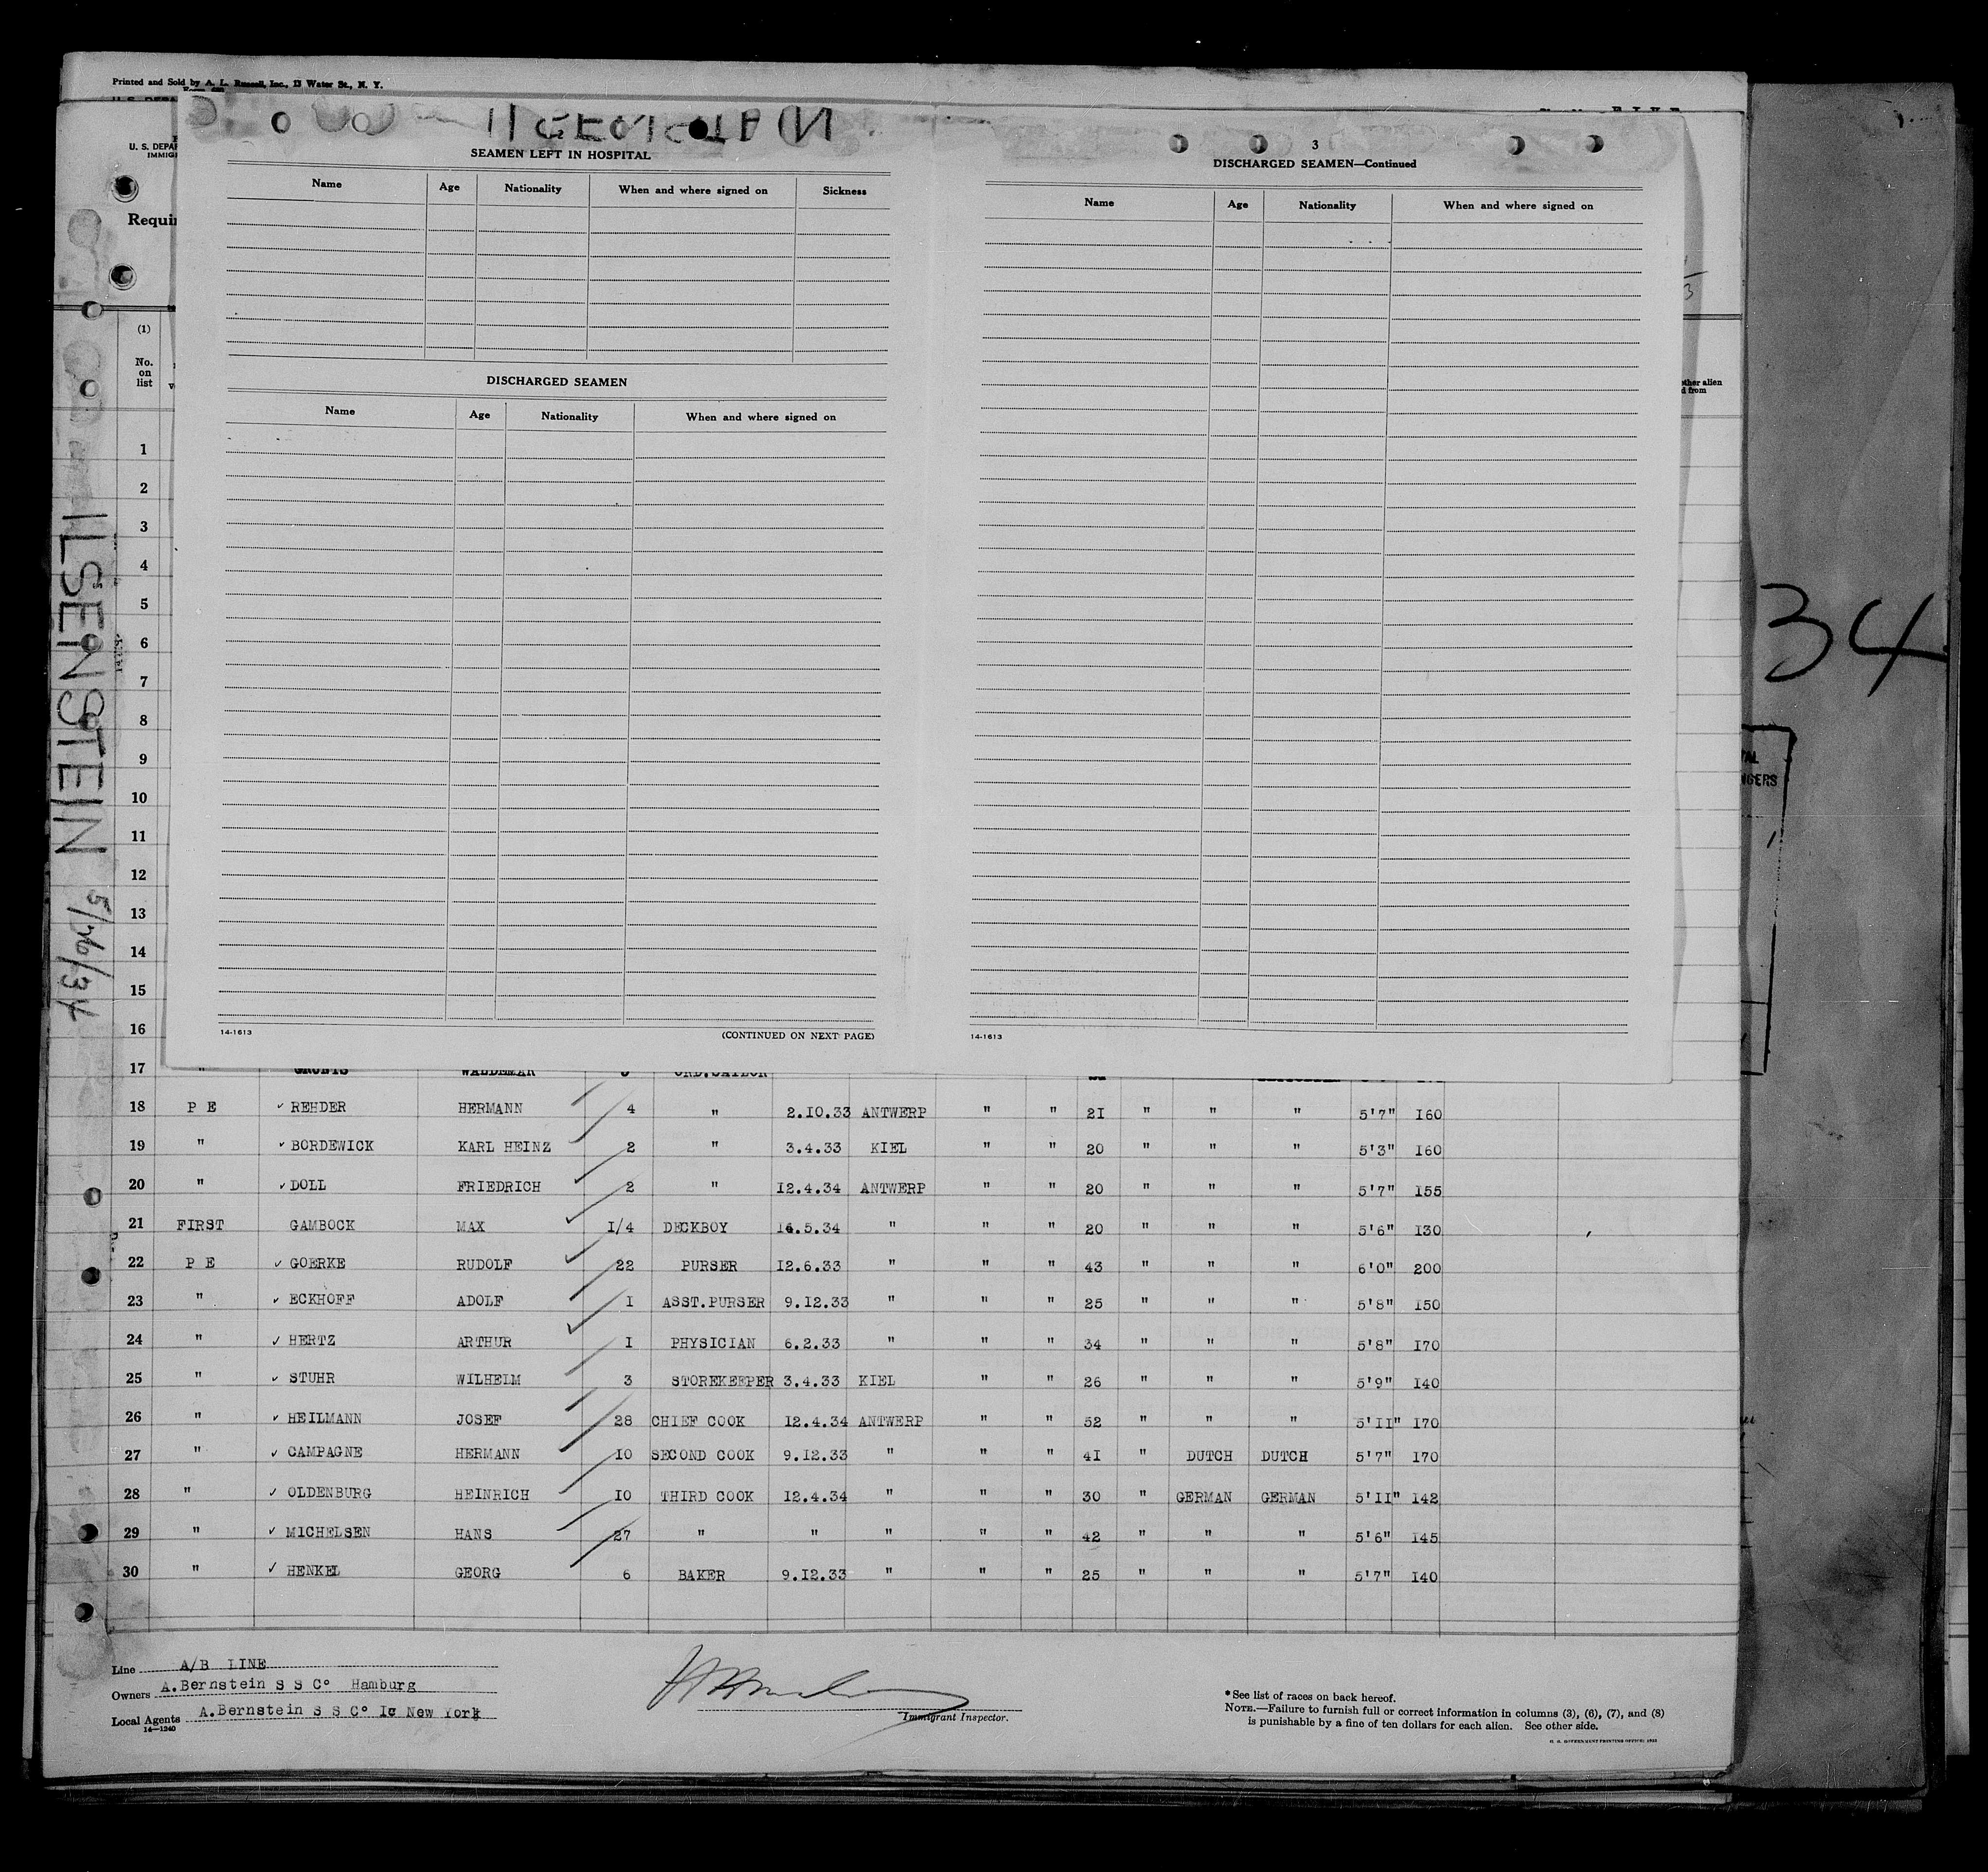 Printed and Sold by A. L. Russell, Inc., 13 Water St., N. Y.
U. S. DEPA
IMMIG
Requi
SEAMEN LEFT IN HOSPITAL
Name Age Nationality When and where signed on Sickness
DISCHARGED SEAMEN
Name Age Nationality When and where signed on
14-1613 (CONTINUED ON NEXT PAGE)
3
DISCHARGED SEAMEN—Continued
Name Age Nationality When and where signed on
14-1613
ILSENSTEIN 5/26/34
34
(1)
No. on list
ther alien
d from
AL
NGERS
1
2
3
4
5
6
7
8
9
10
11
12
13
14
15
16
17 " GRUNTS WALDEMAR ORD.SAILOR
18 P E ✓ REHDER HERMANN 4 " 2.10.33 ANTWERP " " 21 " " " 5'7" 160
19 " ✓ BORDEWICK KARL HEINZ 2 " 3.4.33 KIEL " " 20 " " " 5'3" 160
20 " ✓ DOLL FRIEDRICH 2 " 12.4.34 ANTWERP " " 20 " " " 5'7" 155
21 FIRST GAMBOCK MAX 1/4 DECKBOY 16.5.34 " " " 20 " " " 5'6" 130
22 P E ✓ GOERKE RUDOLF 22 PURSER 12.6.33 " " " 43 " " " 6'0" 200
23 " ✓ ECKHOFF ADOLF 1 ASST.PURSER 9.12.33 " " " 25 " " " 5'8" 150
24 " ✓ HERTZ ARTHUR 1 PHYSICIAN 6.2.33 " " " 34 " " " 5'8" 170
25 " ✓ STUHR WILHELM 3 STOREKEEPER 3.4.33 KIEL " " 26 " " " 5'9" 140
26 " ✓ HEILMANN JOSEF 28 CHIEF COOK 12.4.34 ANTWERP " " 52 " " " 5'11" 170
27 " ✓ CAMPAGNE HERMANN 10 SECOND COOK 9.12.33 " " " 41 " DUTCH DUTCH 5'7" 170
28 " ✓ OLDENBURG HEINRICH 10 THIRD COOK 12.4.34 " " " 30 " GERMAN GERMAN 5'11" 142
29 " ✓ MICHELSEN HANS 27 " " " " " 42 " " " 5'6" 145
30 " ✓ HENKEL GEORG 6 BAKER 9.12.33 " " " 25 " " " 5'7" 140
Line A/B LINE
Owners A.Bernstein S S Co Hamburg
Local Agents A.Bernstein S S Co Ic New York
14—1240
Immigrant Inspector.
* See list of races on back hereof.
NOTE.—Failure to furnish full or correct information in columns (3), (6), (7), and (8)
is punishable by a fine of ten dollars for each alien. See other side.
U. S. GOVERNMENT PRINTING OFFICE: 1933